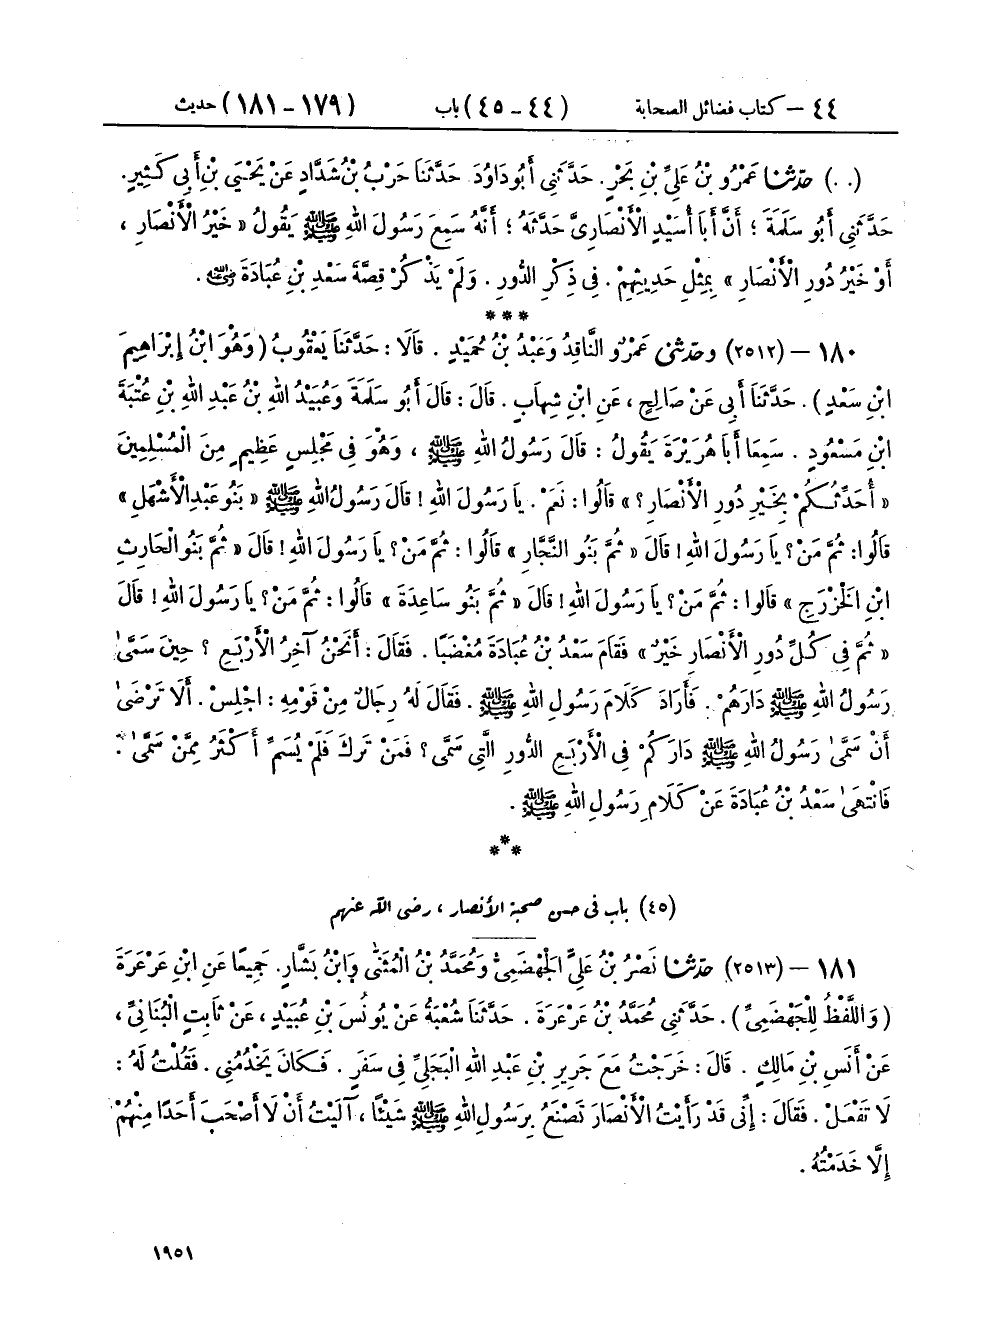 ٤٤ — كتاب فضائل الصحابة (٤٤ – ٤٥) باب (١٧٩ – ١٨١) حديث
(..) حَدَّثَنَا عَمْرُو بْنُ عَلِيِّ بْنِ بَحْرٍ. حَدَّثَنِي أَبُو دَاوُدَ حَدَّثَنَا حَرْبُ بْنُ شَدَّادٍ عَنْ يَحْيَىٰ بْنِ أَبِي كَثِيرٍ.
حَدَّثَنِي أَبُو سَلَمَةَ ؛ أَنَّ أَبَا أُسَيْدٍ الْأَنْصَارِيَّ حَدَّثَهُ ؛ أَنَّهُ سَمِعَ رَسُولَ اللهِ ﷺ يَقُولُ « خَيْرُ الْأَنْصَارِ ،
أَوْ خَيْرُ دُورِ الْأَنْصَارِ » بِمِثْلِ حَدِيثِهِمْ . فِي ذِكْرِ الدُّورِ . وَلَمْ يَذْكُرْ قِصَّةَ سَعْدِ بْنِ عُبَادَةَ رضي الله عنه .
***
١٨٠ — (٢٥١٢) وحَدَّثَنِي عَمْرٌو النَّاقِدُ وَعَبْدُ بْنُ حُمَيْدٍ . قَالَا : حَدَّثَنَا يَعْقُوبُ (وَهُوَ ابْنُ إِبْرَاهِيمَ
ابْنِ سَعْدٍ) . حَدَّثَنَا أَبِي عَنْ صَالِحٍ ، عَنِ ابْنِ شِهَابٍ . قَالَ : قَالَ أَبُو سَلَمَةَ وَعُبَيْدُ اللهِ بْنُ عَبْدِ اللهِ بْنِ عُتْبَةَ
ابْنِ مَسْعُودٍ . سَمِعَا أَبَا هُرَيْرَةَ يَقُولُ : قَالَ رَسُولُ اللهِ ﷺ ، وَهُوَ فِي مَجْلِسٍ عَظِيمٍ مِنَ الْمُسْلِمِينَ
« أُحَدِّثُكُمْ بِخَيْرِ دُورِ الْأَنْصَارِ ؟ » قَالُوا : نَعَمْ . يَا رَسُولَ اللهِ ! قَالَ رَسُولُ اللهِ ﷺ « بَنُو عَبْدِ الْأَشْهَلِ »
قَالُوا : ثُمَّ مَنْ ؟ يَا رَسُولَ اللهِ ! قَالَ « ثُمَّ بَنُو النَّجَّارِ » قَالُوا : ثُمَّ مَنْ ؟ يَا رَسُولَ اللهِ ! قَالَ « ثُمَّ بَنُو الْحَارِثِ
ابْنِ الْخَزْرَجِ » قَالُوا : ثُمَّ مَنْ ؟ يَا رَسُولَ اللهِ ! قَالَ « ثُمَّ بَنُو سَاعِدَةَ » قَالُوا : ثُمَّ مَنْ ؟ يَا رَسُولَ اللهِ ! قَالَ
« ثُمَّ فِي كُلِّ دُورِ الْأَنْصَارِ خَيْرٌ » فَقَامَ سَعْدُ بْنُ عُبَادَةَ مُغْضَبًا . فَقَالَ : أَنَحْنُ آخِرُ الْأَرْبَعِ ؟ حِينَ سَمَّىٰ
رَسُولُ اللهِ ﷺ دَارَهُمْ . فَأَرَادَ كَلَامَ رَسُولِ اللهِ ﷺ . فَقَالَ لَهُ رِجَالٌ مِنْ قَوْمِهِ : اجْلِسْ . أَلَا تَرْضَىٰ
أَنْ سَمَّىٰ رَسُولُ اللهِ ﷺ دَارَكُمْ فِي الْأَرْبَعِ الدُّورِ الَّتِي سَمَّى ؟ فَمَنْ تَرَكَ فَلَمْ يُسَمِّ أَكْثَرُ مِمَّنْ سَمَّىٰ .
فَانْتَهَىٰ سَعْدُ بْنُ عُبَادَةَ عَنْ كَلَامِ رَسُولِ اللهِ ﷺ .
***
(٤٥) باب فى حسن صحبة الأنصار ، رضى الله عنهم
١٨١ — (٢٥١٣) حَدَّثَنَا نَصْرُ بْنُ عَلِيٍّ الْجَهْضَمِيُّ وَمُحَمَّدُ بْنُ الْمُثَنَّىٰ وَابْنُ بَشَّارٍ. جَمِيعًا عَنِ ابْنِ عَرْعَرَةَ
(وَاللَّفْظُ لِلْجَهْضَمِيِّ) . حَدَّثَنِي مُحَمَّدُ بْنُ عَرْعَرَةَ . حَدَّثَنَا شُعْبَةُ عَنْ يُونُسَ بْنِ عُبَيْدٍ ، عَنْ ثَابِتٍ الْبُنَانِيِّ ،
عَنْ أَنَسِ بْنِ مَالِكٍ . قَالَ : خَرَجْتُ مَعَ جَرِيرِ بْنِ عَبْدِ اللهِ الْبَجَلِيِّ فِي سَفَرٍ . فَكَانَ يَخْدُمُنِي . فَقُلْتُ لَهُ :
لَا تَفْعَلْ . فَقَالَ : إِنِّي قَدْ رَأَيْتُ الْأَنْصَارَ تَصْنَعُ بِرَسُولِ اللهِ ﷺ شَيْئًا ، آلَيْتُ أَنْ لَا أَصْحَبَ أَحَدًا مِنْهُمْ
إِلَّا خَدَمْتُهُ .
١٩٥١